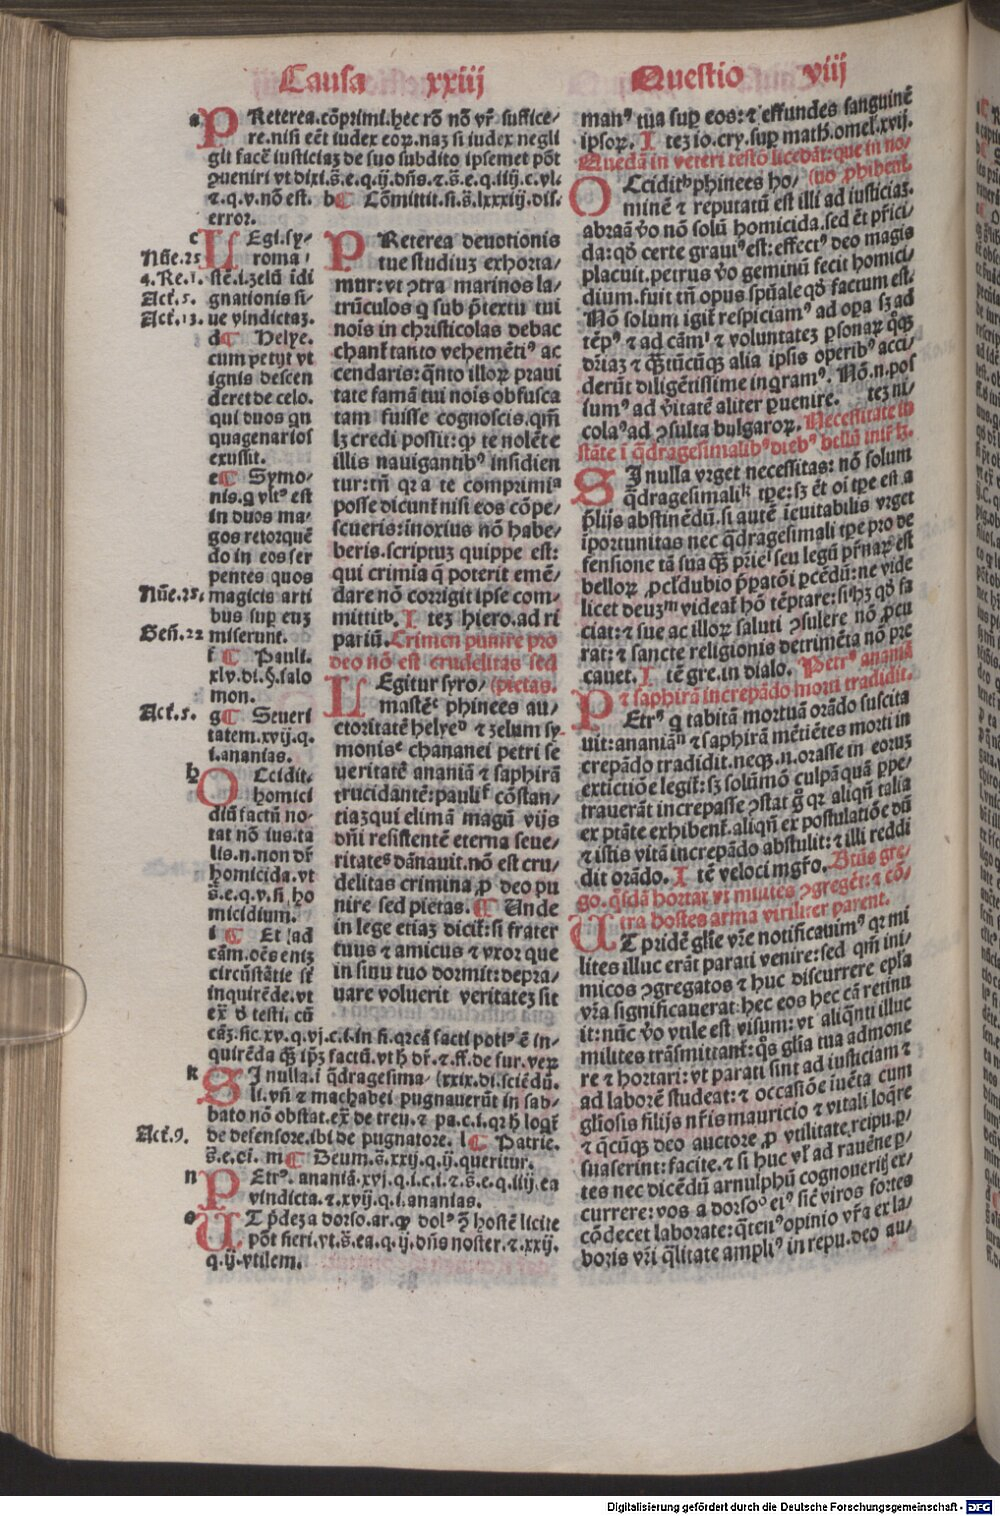 Causa xxiij
Questio viij
a PReterea.cōprimi.hec rō nō vr̄ suffice/
re.nisi eēt iudex eoꝝ.naꝫ si iudex negli
git facē iusticiaꝫ de suo subdito ipsemet pōt
ꝯueniri vt dixi.s̄.e.q.ij.dn̄s.⁊.s̄.e.q.iiij.c.vl.
⁊.q.v.nō est. b¶ Cōmittit.fi.s̄.lxxxiij.dis.
error.
c LEgi.sy/
Nūe.25 roma/
4.Re.1. stē.i.zelū īdi
Act̄.5. gnationis si/
Act̄.13. ue vindictaꝫ.
d¶ Helye.
cum petijt vt
ignis descen
deret de celo.
qui duos qn
quagenarios
exussit.
e¶ Symo/
nis.q vltꝰ est
in duos ma/
gos retorquē
do in eos ser
pentes quos
Nūe.25. magicis arti
bus sup euꝫ
Gen̄.22 miserunt.
f ¶ Pauli.
xlv.di.§.salo
mon.
Act̄.5. g¶ Seueri
tatem.xvij.q.
i.ananias.
h OCcidit.
homici
diū factū no/
tat nō ius.ta
lis.n.non dr̄
homicida.vt
s̄.e.q.v.si ho
micidium.
i ¶ Et ad
cām.oēs eniꝫ
circūstātie sr̄
inquirēde.vt
ex̄ d̄ testi.cū
cāꝫ.sic.xv.q.vj.c.i.in fi.qrcā facti potiꝰ ē in/
quirēda qꝫ̄ ipꝫ factū.vt h̄ dr̄.⁊.ff.de fur.veꝝ
k SI nulla.i q̄dragesima/ (xxix.di.sciēdū.
li.vn̄ ⁊ machabei pugnauerūt in sab/
bato nō obstat.ex̄ de treu.⁊ pa.c.i.qr h̄ loqt̄
Act̄.9. de defensore.ibi de pugnatore. l¶ Patrie.
s̄.e.ci. m¶ Deum.s̄.xxij.q.ij.queritur.
n PEtrꝰ. ananiā.xvj.q.i.c.i.⁊.s̄.e.q.iiij.ea
vindicta.⁊.xvij.q.i.ananias.
o UT p̄deꝫ a dorso.ar.ꝙ dolꝰ ꝯ̄ hostē licite
pōt fieri.vt.s̄.ea.q.ij.dn̄s noster.⁊.xxij.
q.ij.vtilem.
PReterea deuotionis
tue studiuꝫ exhorta/
mur:vt ꝯtra marinos la/
trūculos q sub p̄textu tui
nois in christicolas debac
chant̄ tanto vehemētiꝰ ac
cendaris:q̄nto illoꝝ praui
tate famā tui nois obfusca
tam fuisse cognoscis.qm̄
lꝫ credi possit:ꝙ te nolēte
illis nauigantibꝰ insidien
tur:tn̄ qr a te comprimiᵃ
posse dicunt̄ nisi eos cōpe/
scueris:inoxius nō habe/
beris.scriptuꝫ quippe est:
qui crimia q̄ poterit emē/
dare nō corrigit ipse com/
mittitᵇ. I teꝫ hiero.ad ri
pariū. Crimen punire pro
deo nō est crudelitas sed
LEgitur syro/ (pietas.
mastēᶜ phinees au/
ctoritatē helyeᵈ ⁊ zelum sy
monisᵉ chananei petri se
ueritatē ananiā ⁊ saphirā
trucidantē:pauliᶠ cōstan/
tiaꝫqui elimā magū vijs
dn̄i resistentē eterna seue/
ritateᵍ dānauit.nō est cru/
delitas crimina ꝓ deo pu
nire sed pietas. ¶ Unde
in lege etiaꝫ dicit̄:si frater
tuus ⁊ amicus ⁊ vxor que
in sinu tuo dormit:depra/
uare voluerit veritateꝫ sit
manꝰ tua sup eos:⁊ effundes sanguinē
ipsoꝝ. I teꝫ io.cry.sup math̄.omel̄.xvij.
Quedā in veteri testō licebāt:que in no/
OCciditʰ phinees ho/ (uo ꝓhibent̄.
minē ⁊ reputatū est illi ad iusticiaꝫ.
abraā v̄o nō solū homicida.sed ēt p̄rici/
da:qd̄ certe grauiꝰ est:effectꝰ deo magis
placuit.petrus v̄o geminū fecit homici/
dium.fuit tn̄ opus spūale qd̄ factum est.
Nō solum igit̄ respiciamꝰ ad opa sꝫ ad
tēpꝰ ⁊ ad cāmⁱ ⁊ voluntateꝫ ꝑsonaꝝ q̄qꝫ
dr̄iaꝫ ⁊ qꝫ̄tūcūqꝫ alia ipsis operibꝰ acci/
derūt diligētissime inqramꝰ. Nō.n.pos
sumꝰ ad v̄itatē aliter ꝑuenire. teꝫ ni/
colaꝰ ad ꝯsulta bulgaroꝝ. Necessitate in
stāte i q̄dragesimalibꝰ diebꝰ bellū inir̄ lꝫ.
SI nulla vrget necessitas: nō solum
q̄dragesimaliᵏ tp̄e:sꝫ ēt oi tp̄e est a
p̄lijs abstinēdū.si autē ieuitabilis vrget
iportunitas nec q̄dragesimali tp̄e pro de
fensione tā sua qꝫ̄ pr̄ieˡ seu legū pr̄naꝝ est
belloꝝ ꝓcldubio p̄patōi ꝑcēdū:ne vide
licet deuꝫᵐ videat̄ hō tēptare:si hꝫ qd̄ fa
ciat:⁊ sue ac illoꝝ saluti ꝯsulere nō ꝓcu
rat:⁊ sancte religionis detrimēta nō pre
cauet. I tē gre.in dialo. Petrꝰ ananiā
⁊ saphirā increpādo morti tradidit.
PEtrꝰ q tabitā mortuā orādo suscita
uit:ananiāⁿ ⁊ saphirā mētiētes morti in
crepādo tradidit.neqꝫ.n.orasse in eoruꝫ
extictiōe legit̄:sꝫ solūmō culpā quā ꝑpe/
trauerāt increpasse ꝯstat g̊ qr aliqn̄ talia
ex ptāte exhibent̄.aliqn̄ ex postulatiōe dū
⁊ istis vitā increpādo abstulit:⁊ illi reddi
dit orādo. I tē veloci mgr̄o. Btūs gre/
go.q̄sdā hortat̄ vt milites ꝯgreget:⁊ cō/
tra hostes arma viriliter parent.
UT pridē glie vr̄e notificauimꝰ qr mi
lites illuc erāt parati venire:sed qm̄ ini/
micos ꝯgregatos ⁊ huc discurrere epl̄a
vr̄a significauerat:hec eos hec cā retinu
it:nūc v̄o vtile est visum: vt aliq̄nti illuc
milites trāsmittant̄:q̄s glia tua admone
re ⁊ hortari:vt parati sint ad iusticiam ⁊
ad laborē studeat:⁊ occasiōe iuēta cum
gliosis filijs nr̄is mauricio ⁊ vitali loqre
⁊ q̄cūqꝫ deo auctore ꝓ vtilitate reipu.ꝑ/
suaserint:facite.⁊ si huc vl̄ ad rauēne ꝑ/
tes nec dicēdū arnulphū cognoueritj ex/
currere:vos a dorsoᵒ eiꝰ sic̄ viros fortes
cōdecet laborate:q̄tenꝰ opinio vr̄a ex la/
boris vr̄i q̄litate ampliꝰ in repu.deo au/
Digitalisierung gefördert durch die Deutsche Forschungsgemeinschaft - DFG